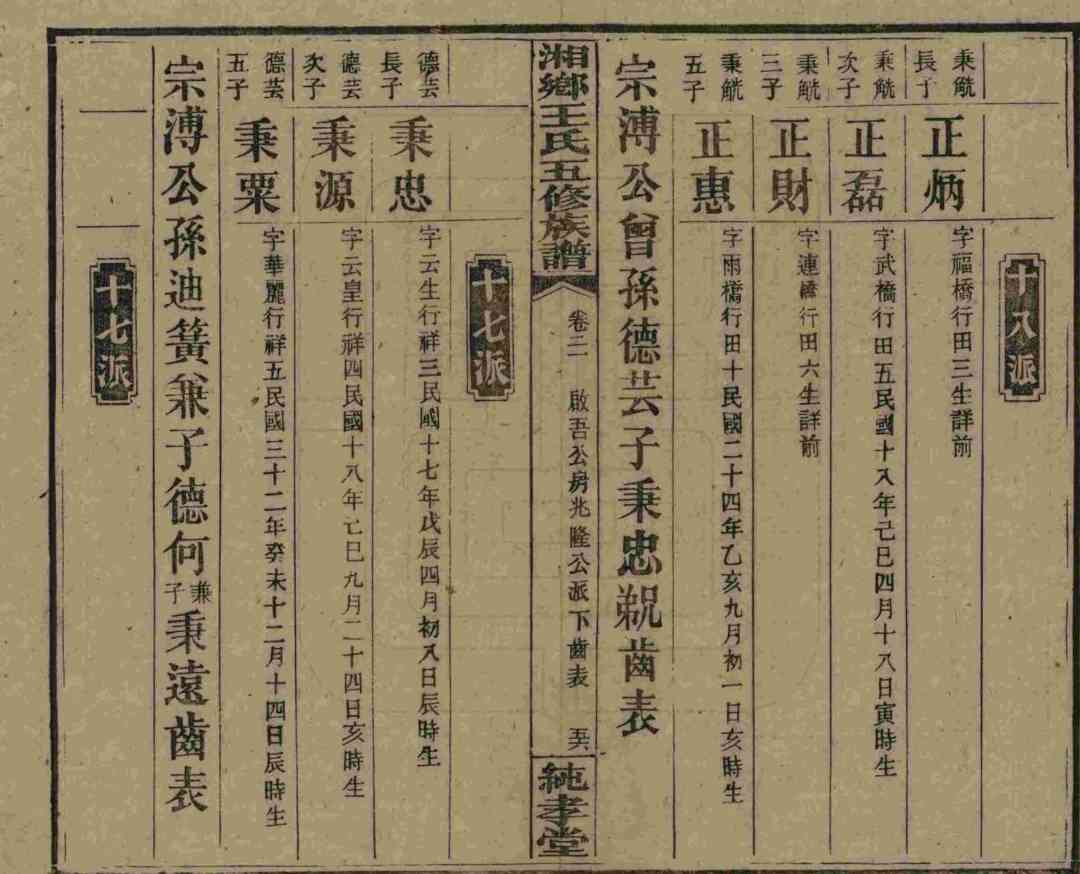 十八派
秉觥長子
正炳
字福橋行田三生詳前
秉觥次子
正磊
字武橋行田五民國十八年己巳四月十八日寅時生
秉觥三子
正財
字連橋行田六生詳前
秉觥五子
正惠
字雨橋行田十民國二十四年乙亥九月初一日亥時生
宗溥公曾孫德芸子秉忠覜齒表
湘鄉王氏五修族譜
卷二 啟吾公房兆隆公派下齒表
純孝堂
十七派
德芸長子
秉忠
字云生行祥三民國十七年戊辰四月初八日辰時生
德芸次子
秉源
字云皇行祥四民國十八年己巳九月二十四日亥時生
德芸五子
秉粟
字華麗行祥五民國三十二年癸未十二月十四日辰時生
宗溥公孫迪簧兼子德何兼子秉遠齒表
十七派